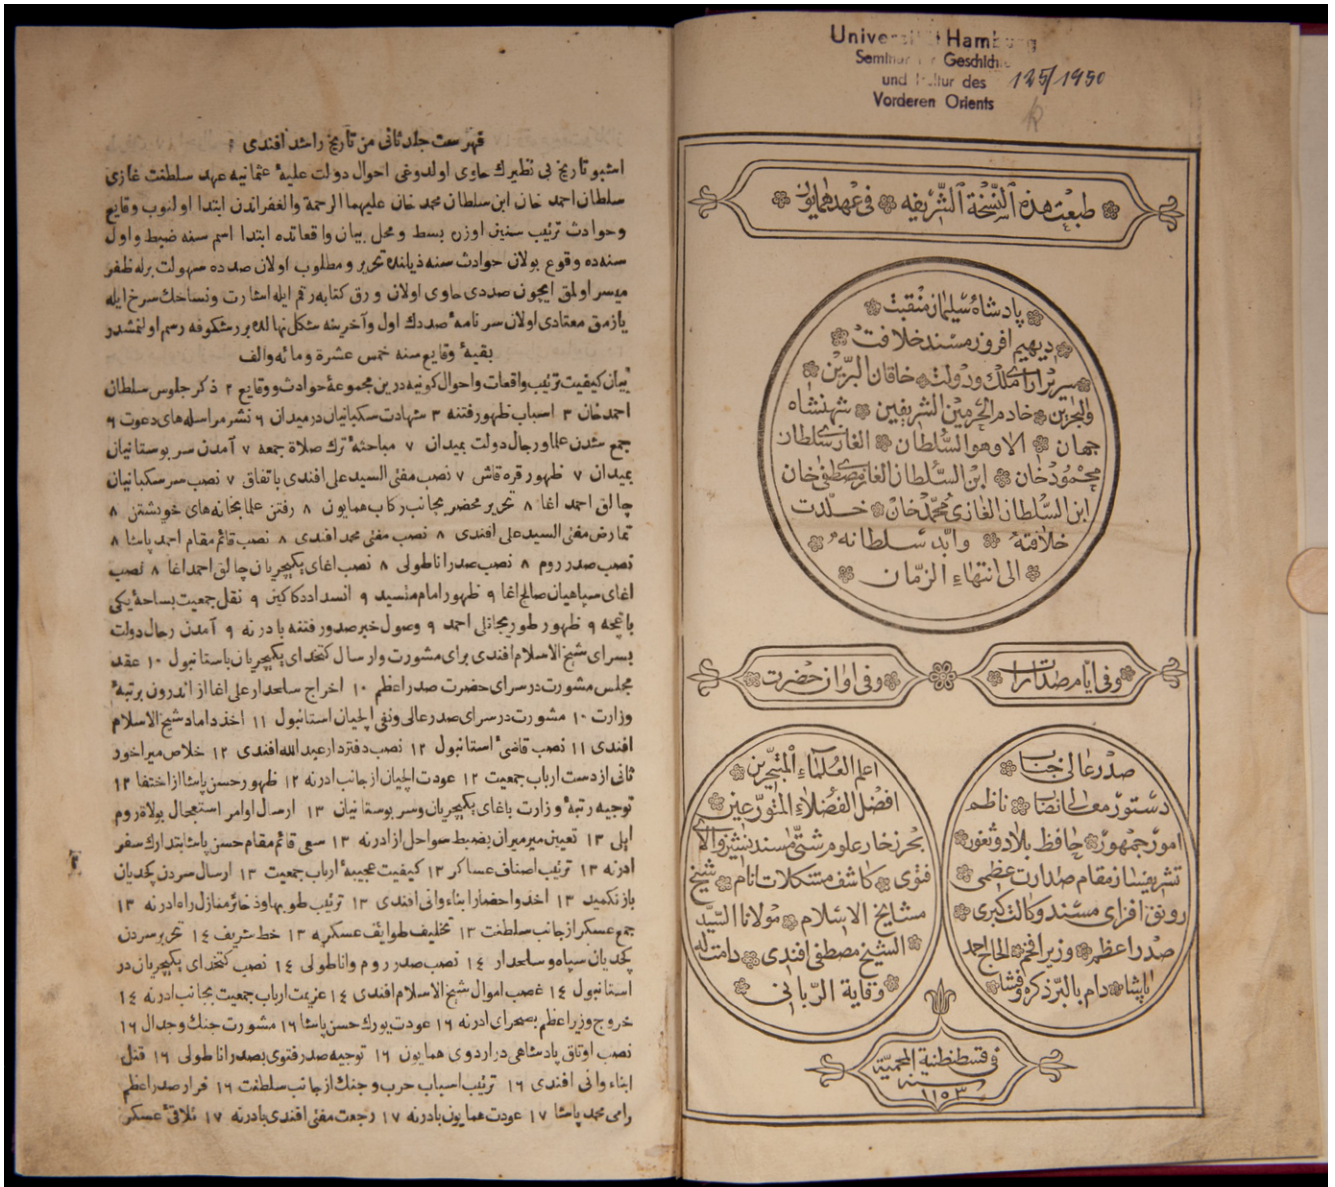 Universität Hamburg
Seminar für Geschichte
und Kultur des
Vorderen Orients
125/1950
طبعت هذه النسخة الشريفه في عهد همايون
پادشاه سليمان منقبت
ديهيم افروز مسند خلافت
سرير اراى ملك و دولت خاقان البرين
والبحرين خادم الحرمين الشريفين شهنشاه
جهان الا وهو السلطان الغازى سلطان
محمود خان ابن السلطان الغازى مصطفى خان
ابن السلطان الغازى محمد خان خلدت
خلافته وابد سلطانه
الى انتهاء الزمان
وفى ايام صدارت
وفى اوان حضرت
صدر عالى جناب
دستور معالى انصاب ناظم
امور جمهور حافظ بلاد وثغور
تشريفساز مقام صدارت عظمى
رونق افزاى مسند وكالت كبرى
صدر اعظم وزير افخم الحاج احمد
پاشا دام بالبر ذكره وفشا
اعلم العلماء المتبحرين
افضل الفضلاء المتورعين
بحر زخار علوم شتى مسند نشين والاى
فتوى كاشف مشكلات انام شيخ
مشايخ الاسلام مولانا السيد
الشيخ مصطفى افندى دامت له
وقاية الربانى
فى قسطنطنية المحمية
سنه
١١٥٣
فهرست جلد ثانى من تاريخ راشد افندى
اشبو تاريخ بى نظيرك حاوى اولدوغى احوال دولت عليۀ عثمانيه عهد سلطنت غازى
سلطان احمد خان ابن سلطان محمد خان عليهما الرحمة والغفراندن ابتدا اولنوب وقايع
وحوادث ترتيب سنين اوزره بسط ومحل بيان واقعاتده ابتدا اسم سنه ضبط واول
سنه ده وقوع بولان حوادث سنه ذيلنده تحرير و مطلوب اولان صدده سهولت برله ظفر
ميسر اولمق ايچون صددى حاوى اولان ورق كتابه رقم ايله اشارت ونساخك سرخ ايله
يازمق معتادى اولان سر نامۀ صددك اول وآخرينه شكل نهالده بر شكوفه رسم اولنمشدر
بقيۀ وقايع سنه خمس عشرة ومائه والف
بيان كيفيت ترتيب واقعات واحوال كونيه درين مجموعۀ حوادث ووقايع ٢ ذكر جلوس سلطان
احمد خان ٣ اسباب ظهور فتنه ٣ شهادت سكبانيان در ميدان ٦ نشر مراسله هاى دعوت ٦
جمع شدن علما ورجال دولت بميدان ٧ مباحثۀ ترك صلاة جمعه ٧ آمدن سر بوستانيان
بميدان ٧ ظهور قره قاش ٧ نصب مفتى السيد على افندى باتفاق ٧ نصب سر سكبانيان
چالق احمد اغا ٨ تحرير محضر بجانب ركاب همايون ٨ رفتن علما بخانه هاى خويشتن ٨
تمارض مفتى السيد على افندى ٨ نصب مفتى محمد افندى ٨ نصب قائم مقام احمد پاشا ٨
نصب صدر روم ٨ نصب صدر اناطولى ٨ نصب اغاى يكيچريان چالق احمد اغا ٨ نصب
اغاى سپاهيان صالح اغا ٩ ظهور امام مفسيد ٩ انسداد دكاكين ٩ نقل جمعيت بساحۀ يكى
باغچه ٩ ظهور طور مجانلى احمد ٩ وصول خبر صدور فتنه بادرنه ٩ آمدن رجال دولت
بسراى شيخ الاسلام افندى براى مشورت وارسال كتخداى يكيچريان باستانبول ١٠ عقد
مجلس مشورت در سراى حضرت صدر اعظم ١٠ اخراج سلحدار على اغا از اندرون برتبۀ
وزارت ١٠ مشورت در سراى صدر عالى ونفى ايلچيان استانبول ١١ اخذ داماد شيخ الاسلام
افندى ١١ نصب قاضئ استانبول ١٢ نصب دفتردار عبد الله افندى ١٢ خلاص ميراخور
ثانى از دست ارباب جمعيت ١٢ عودت ايلچيان از جانب ادرنه ١٢ ظهور حسن پاشا از اختفا ١٢
توجيه رتبۀ وزارت باغاى يكيچريان وسر بوستانيان ١٣ ارسال اوامر استعجال بولاة روم
ايلى ١٣ تعيين ميرميران بضبط سواحل از ادرنه ١٣ سعى قائم مقام حسن پاشا بتدارك سفر
ادرنه ١٣ ترتيب اصناف عساكر ١٣ كيفيت عجيبۀ ارباب جمعيت ١٣ ارسال سردن كچديان
باز نكميد ١٣ اخذ واحضار ابناء وانى افندى ١٣ ترتيب طوبها وذخائر منازل راه ادرنه ١٣
جمع عسكر از جانب سلطنت ١٣ تخليف طوايف عسكريه ١٣ خط شريف ١٤ تحرير سردن
كچديان سپاه وسلحدار ١٤ نصب صدر روم واناطولى ١٤ نصب كتخداى يكيچريان در
استانبول ١٤ غصب اموال شيخ الاسلام افندى ١٤ عزيمت ارباب جمعيت بجانب ادرنه ١٤
خروج وزير اعظم بصحراى ادرنه ١٦ عودت يورك حسن پاشا ١٦ مشورت جنك وجدال ١٦
نصب اوتاق پادشاهى در اردوى همايون ١٦ توجيه صدر فتوى بصدر اناطولى ١٦ قتل
ابناء وانى افندى ١٦ ترتيب اسباب حرب وجنك از جانب سلطنت ١٦ فرار صدر اعظم
رامى محمد پاشا ١٧ عودت همايون بادرنه ١٧ رجعت مفتى افندى بادرنه ١٧ تلاقئ عسكر